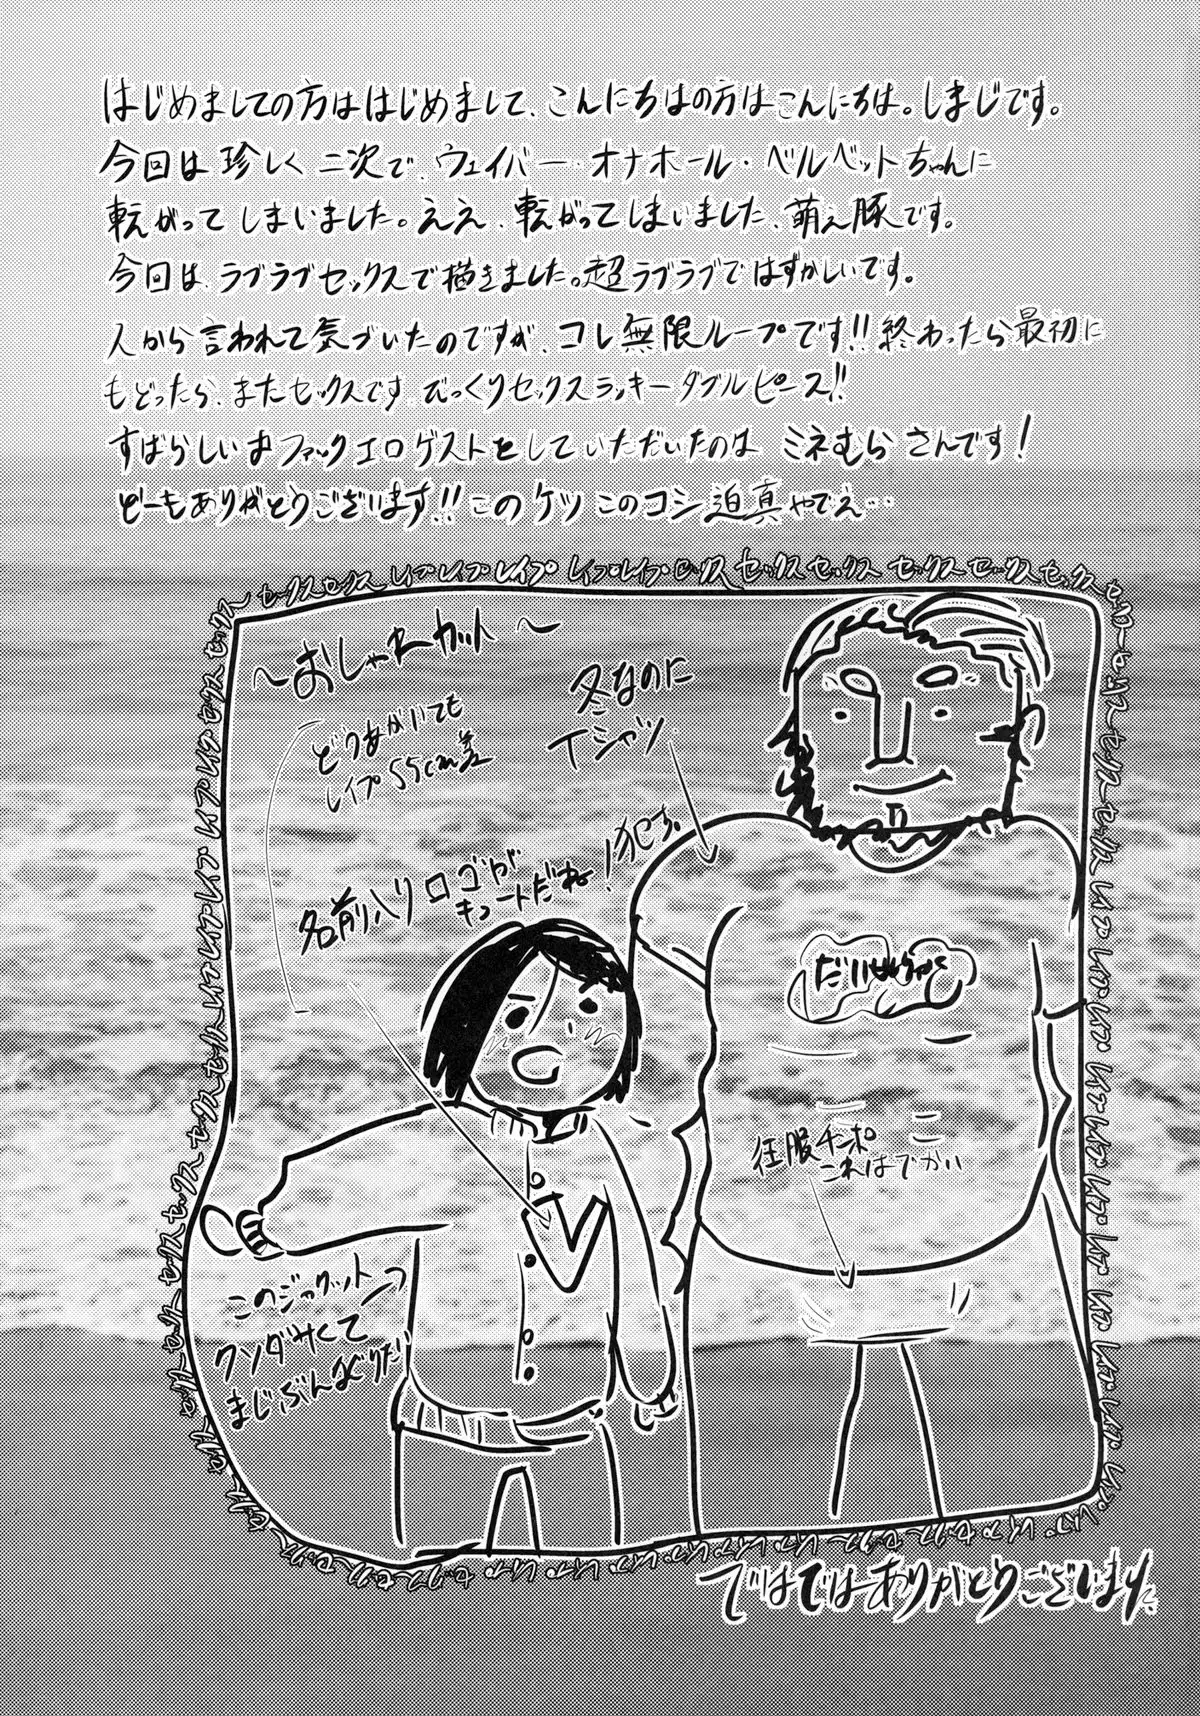 はじめましての方ははじめまして、こんにちはの方はこんにちは。しまじです。
今回は珍しく二次で、ウェイバー・オナホール・ベルベットちゃんに
転がってしまいました。ええ、転がってしまいました、萌え豚です。
今回は、ラブラブセックスで描きました。超ラブラブではずかしいです。
人から言われて気づいたのですが、コレ無限ループです!!終わったら最初に
もどったら、またセックスです。びっくりセックスラッキーダブルピース!!
すばらしいおファックエロゲストをしていただいたのは ミネむら さんです!
どーもありがとうございます!!このケツ このコシ 迫真やでえ…
〜おしゃれカット〜
どうあがいても
レイプ55cm差
冬なのに
Tシャツ
名前入りロゴが
キュートだね!犯す。
征服チンポ
これはでかい
このジャケット
クソダサくて
まじぶんなぐりたい
ではではありがとうございます。